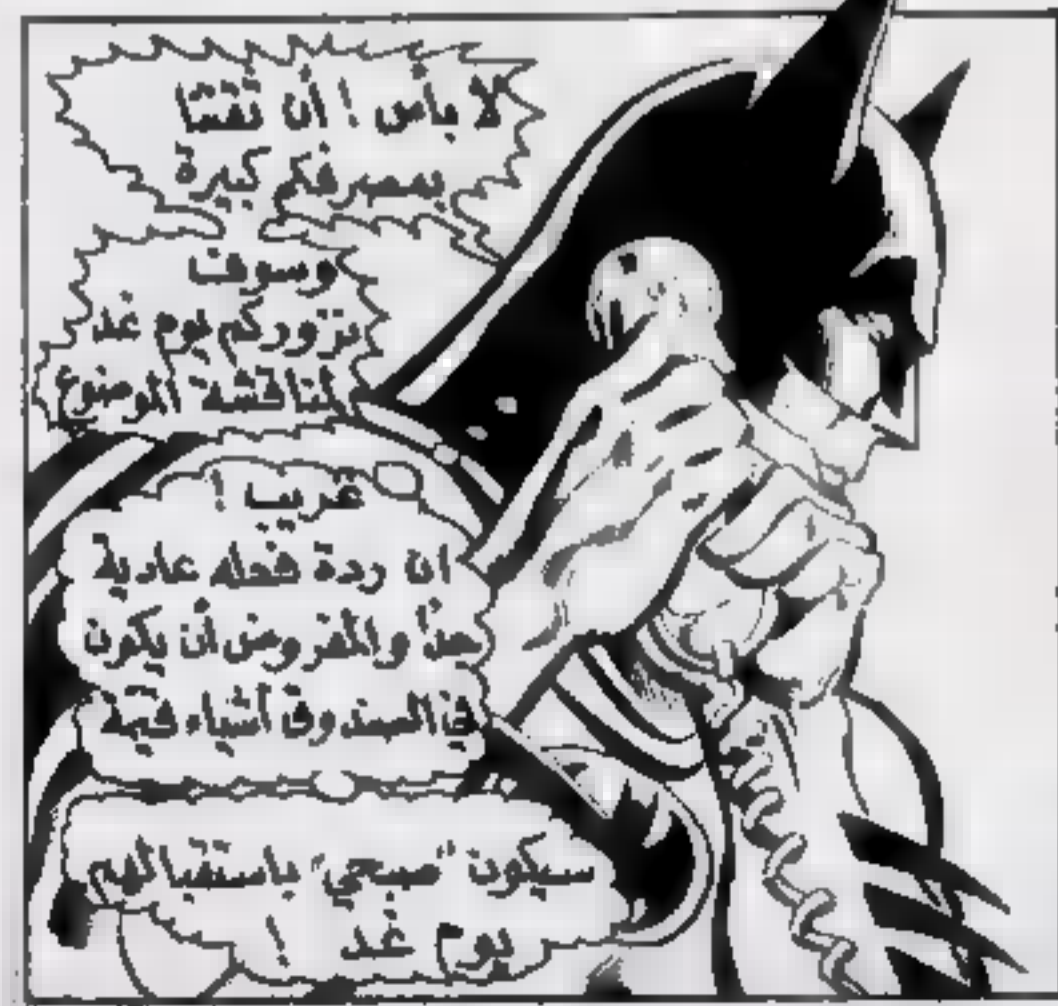 لا بأس ! أن ثقتنا
بمصرفكم كبيرة
وسوف
نزوركم يوم غد
لمناقشة الموضوع
غريب !
ان ردة فعله عادية
جداً والمفروض أن يكون
في الصندوق أشياء قيمة
سيكون "صبحي" باستقبالهم
يوم غد !